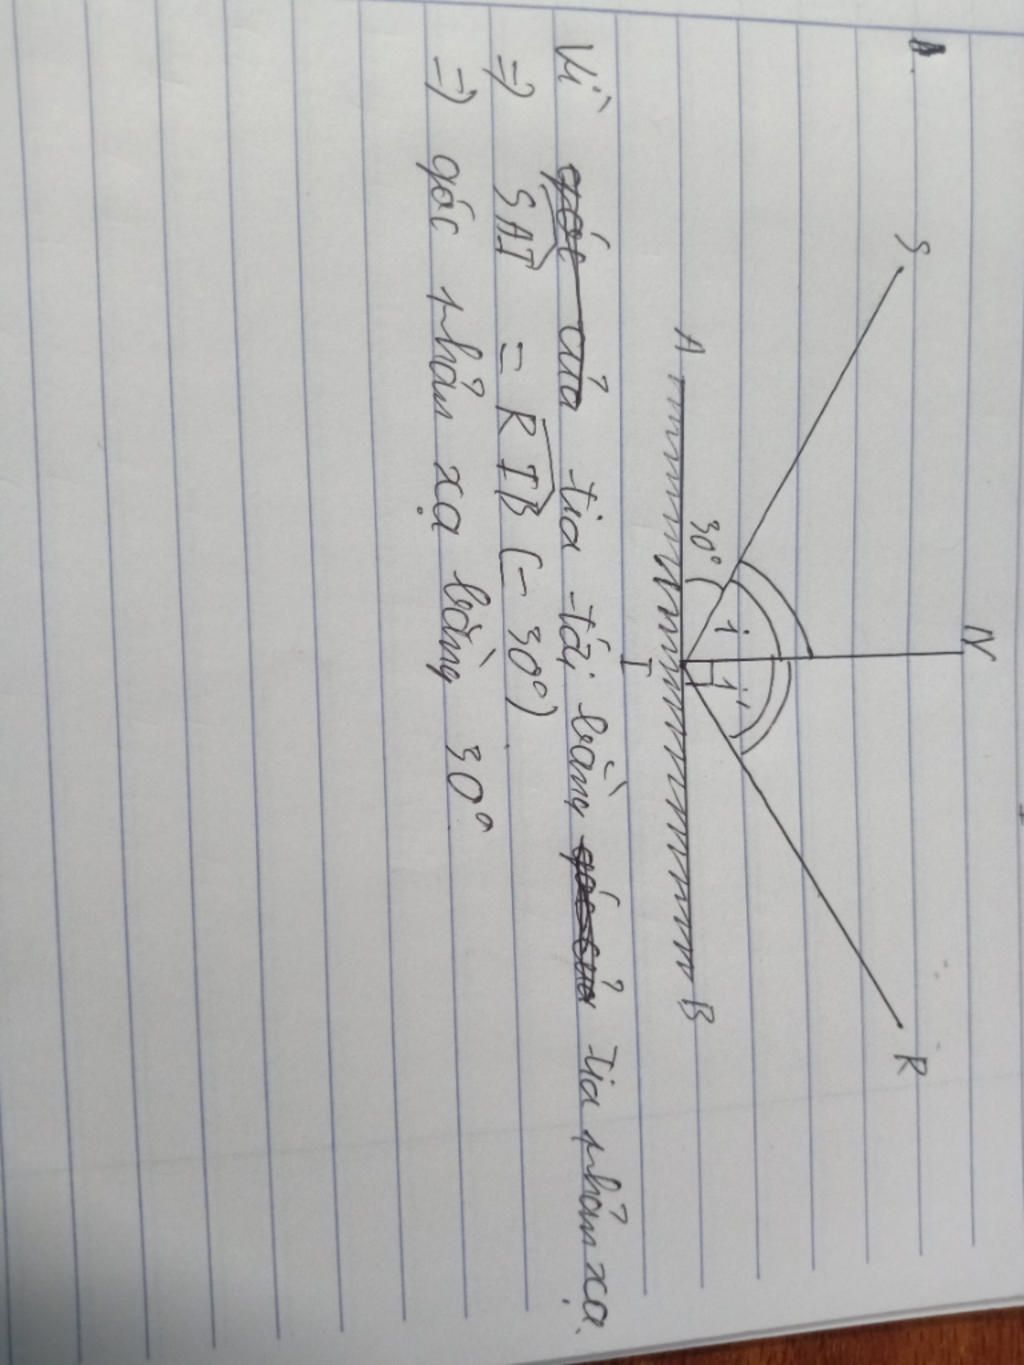 1.
S
N
R
A
30°
i
i'
B
I
Vì góc của tia tới bằng góc của tia phản xạ.
=> SAI = RIB (= 30°)
=> góc phản xạ bằng 30°